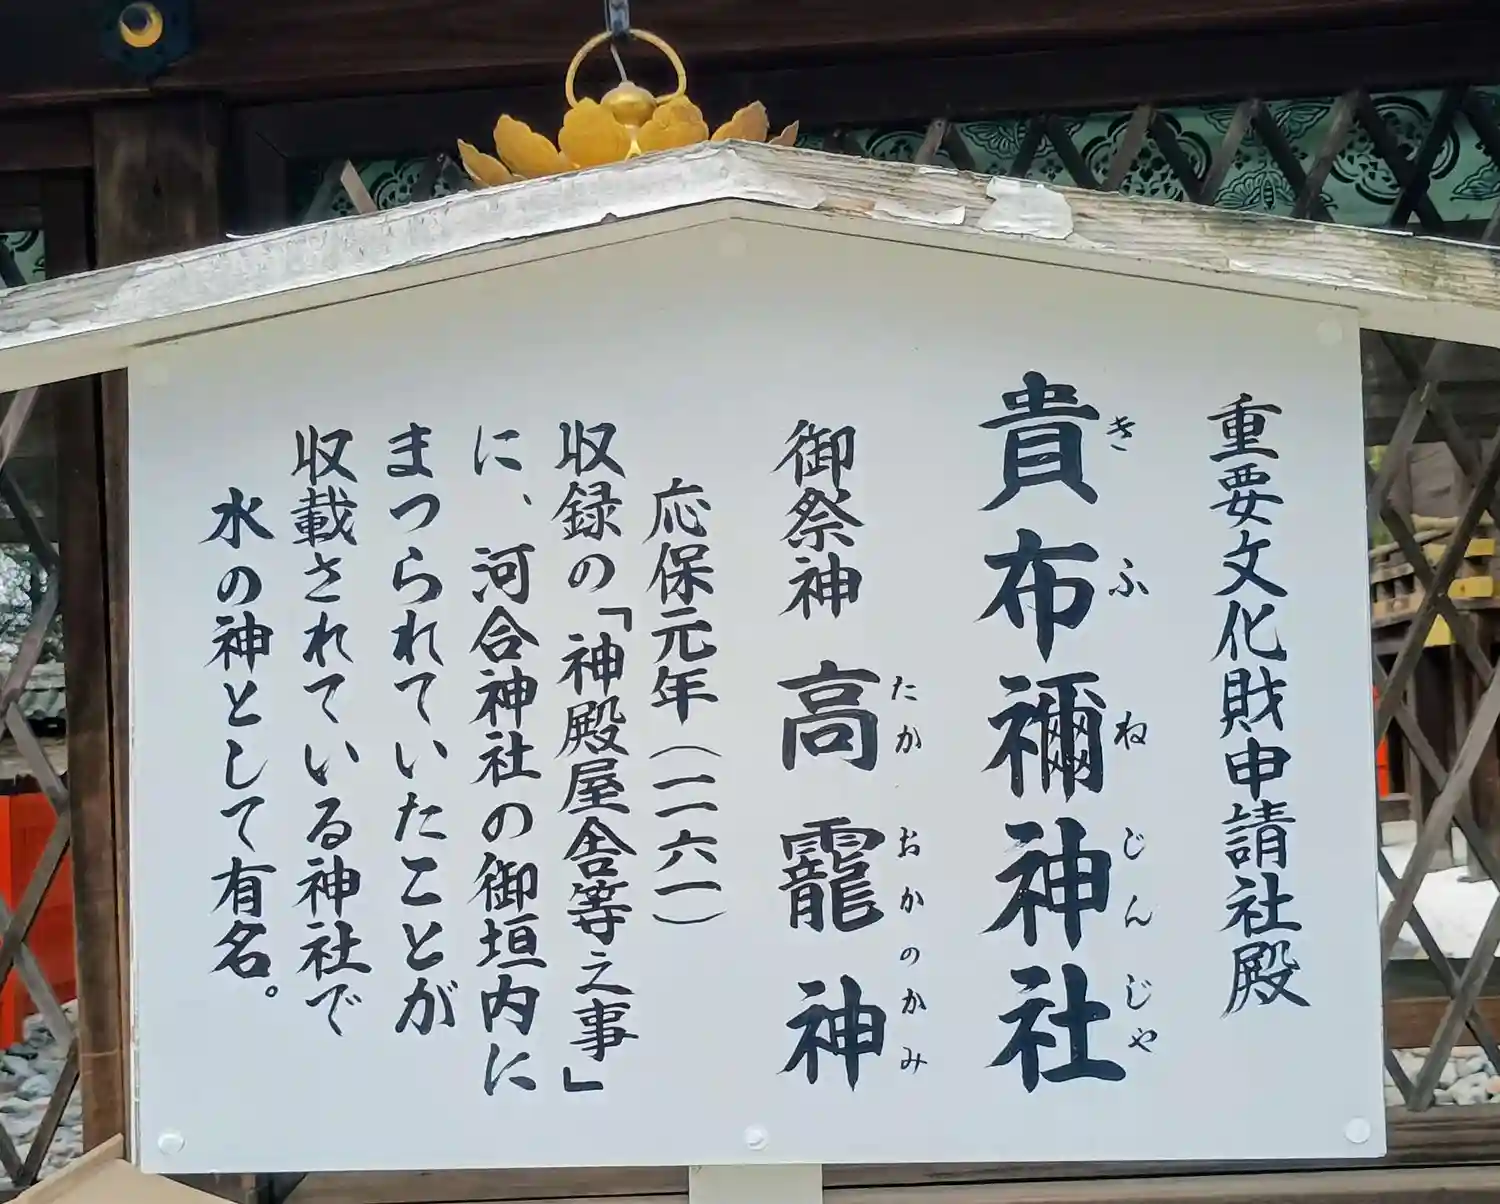 重要文化財申請社殿
貴布禰神社
きふねじんじゃ
御祭神 高龗神
たかおかのかみ
応保元年（一一六一）
収録の「神殿屋舎等之事」
に、河合神社の御垣内に
まつられていたことが
収載されている神社で
水の神として有名。